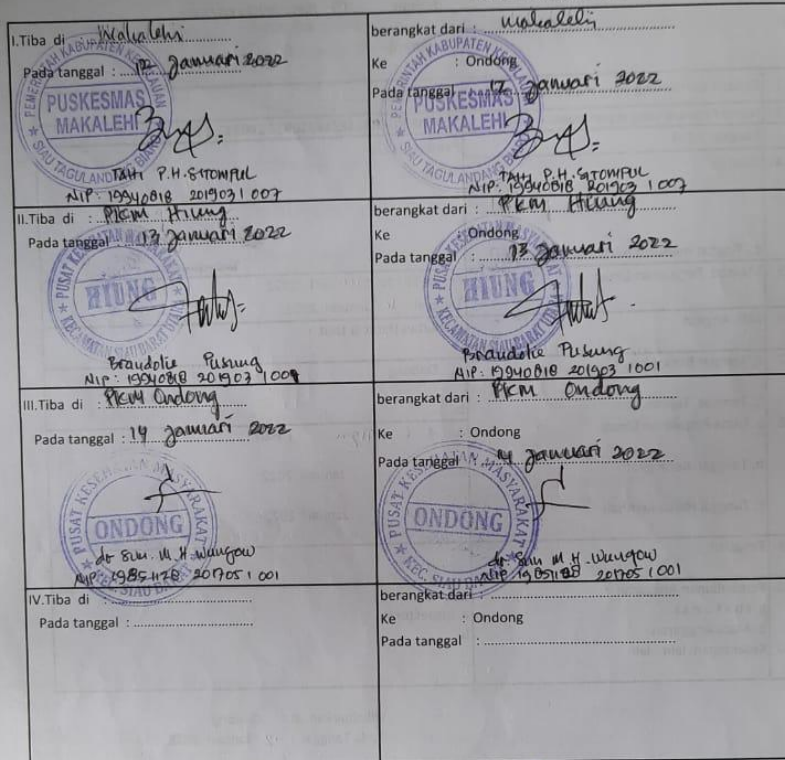 I.Tiba di : Makalehi
Pada tanggal : 12 Januari 2022
PEMERINTAH KABUPATEN KEPULAUAN
PUSKESMAS
MAKALEHI
SIAU TAGULANDANG BIARO
TAHI P.H. SITOMPUL
NIP: 19940818 201903 1 007
berangkat dari : Makalehi
Ke : Ondong
Pada tanggal : 12 Januari 2022
PEMERINTAH KABUPATEN KEPULAUAN
PUSKESMAS
MAKALEHI
SIAU TAGULANDANG BIARO
TAHI P.H. SITOMPUL
NIP: 19940818 201903 1 007
II.Tiba di : PKM Hiung
Pada tanggal : 13 Januari 2022
PUSAT KESEHATAN MASYARAKAT
HIUNG
KECAMATAN SIAU BARAT UTARA
Braudolie Pusung
NIP: 19940818 201903 1 001
berangkat dari : PKM Hiung
Ke : Ondong
Pada tanggal : 13 Januari 2022
PUSAT KESEHATAN MASYARAKAT
HIUNG
KECAMATAN SIAU BARAT UTARA
Braudolie Pusung
NIP: 19940818 201903 1001
III.Tiba di : PKM Ondong
Pada tanggal : 14 Januari 2022
PUSAT KESEHATAN MASYARAKAT
ONDONG
KEC. SIAU BARAT
dr Sun. M. H. Wungow
NIP. 19851128 201705 1 001
berangkat dari : PKM Ondong
Ke : Ondong
Pada tanggal : 14 Januari 2022
PUSAT KESEHATAN MASYARAKAT
ONDONG
KEC. SIAU BARAT
dr Sun M. H. Wungow
NIP 19851128 201705 1 001
IV.Tiba di :
Pada tanggal :
berangkat dari :
Ke : Ondong
Pada tanggal :